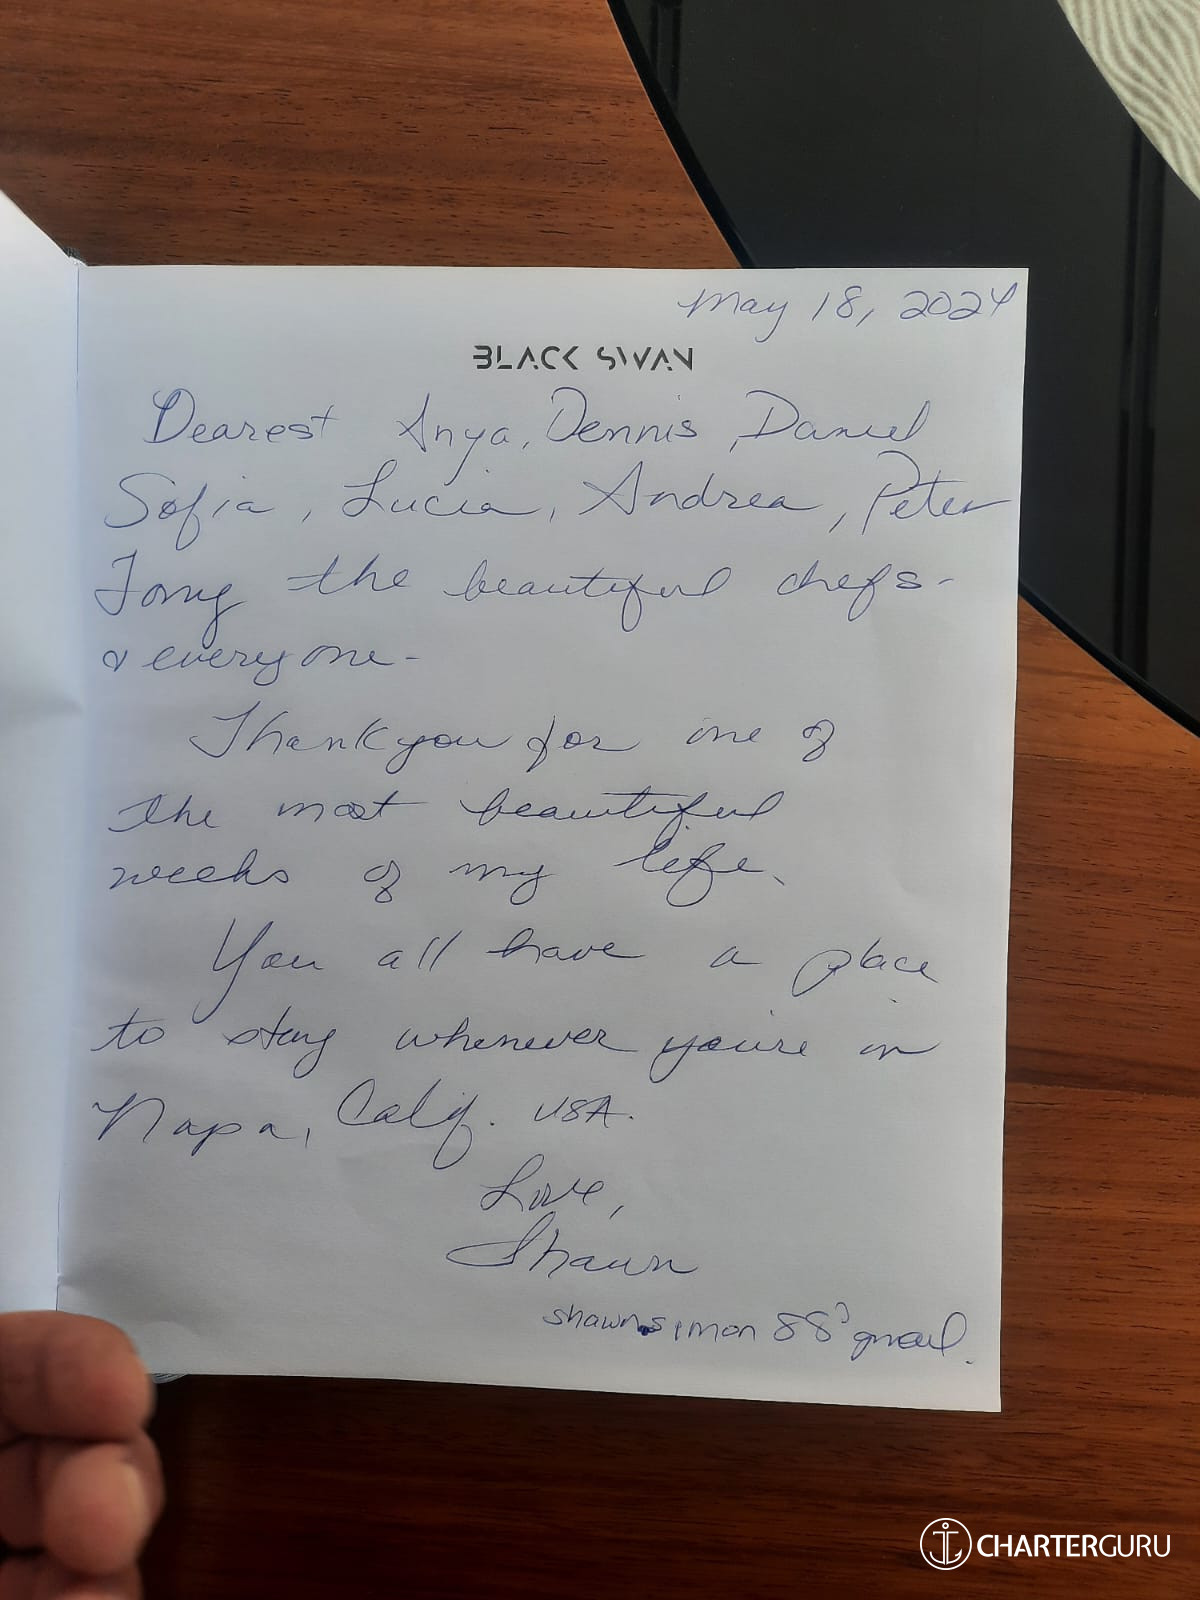 May 18, 2024
BLACK SWAN
Dearest Anya, Dennis, Daniel
Sofia, Lucia, Andrea, Peter
the beautiful chefs-
& everyone-
Thank you for one of
the most beautiful
weeks of my life.
You all have a place
to stay whenever you're in
Napa, Calif. USA.
Love,
Shawn
shawnsimon 88 gmail.
CHARTERGURU